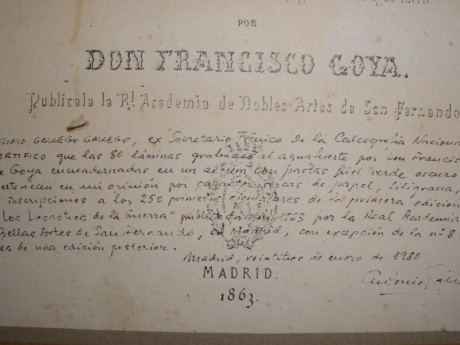 POR
DON FRANCISCO GOYA.
Publícala la Rl. Academia de Nobles Artes de San Fernando
GALLEGO, ex Secretario Técnico de la Calcografía Nacional
que las 80 láminas grabadas al aguafuerte por Don Francis
de Goya encuadernadas en un album con pastas piel verde oscuro
en mi opinión por características de papel, filigrana,
inscripciones a los 250 primeros ejemplares de la primera edicion
Los Desastres de la Guerra" publicada en 1863 por la Real Academia
Bellas Artes de San Fernando, de Madrid, con excepción de la nº 8
es de una edición posterior.
Madrid, veintitres de enero de 1980
MADRID.
1863.
Antonio